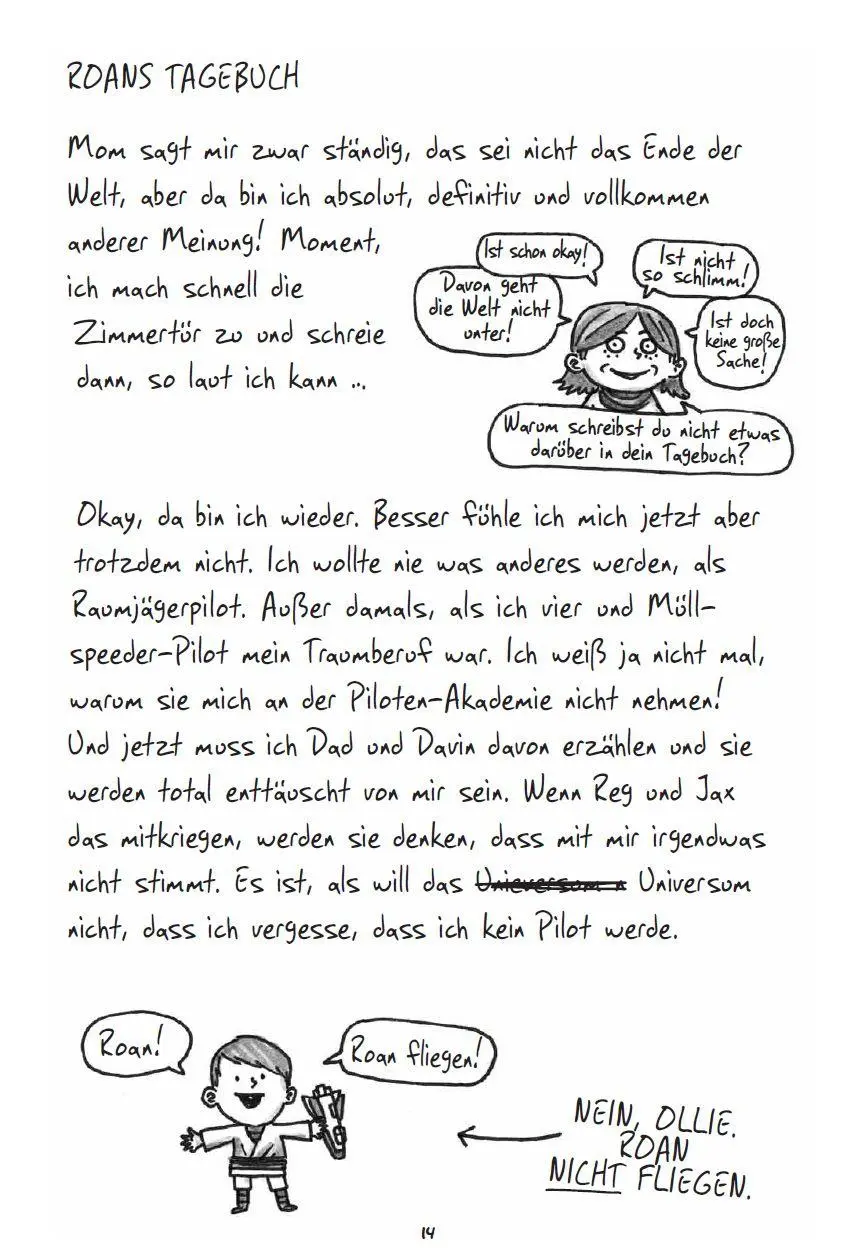 ROANS TAGEBUCH
Mom sagt mir zwar ständig, das sei nicht das Ende der
Welt, aber da bin ich absolut, definitiv und vollkommen
anderer Meinung! Moment,
ich mach schnell die
Zimmertür zu und schreie
dann, so laut ich kann ...
Ist schon okay!
Ist nicht
so schlimm!
Davon geht
die Welt nicht
unter!
Ist doch
keine große
Sache!
Warum schreibst du nicht etwas
darüber in dein Tagebuch?
Okay, da bin ich wieder. Besser fühle ich mich jetzt aber
trotzdem nicht. Ich wollte nie was anderes werden, als
Raumjägerpilot. Außer damals, als ich vier und Müll-
speeder-Pilot mein Traumberuf war. Ich weiß ja nicht mal,
warum sie mich an der Piloten-Akademie nicht nehmen!
Und jetzt muss ich Dad und Davin davon erzählen und sie
werden total enttäuscht von mir sein. Wenn Reg und Jax
das mitkriegen, werden sie denken, dass mit mir irgendwas
nicht stimmt. Es ist, als will das Universum
nicht, dass ich vergesse, dass ich kein Pilot werde.
Roan!
Roan fliegen!
NEIN, OLLIE.
ROAN
NICHT FLIEGEN.
14